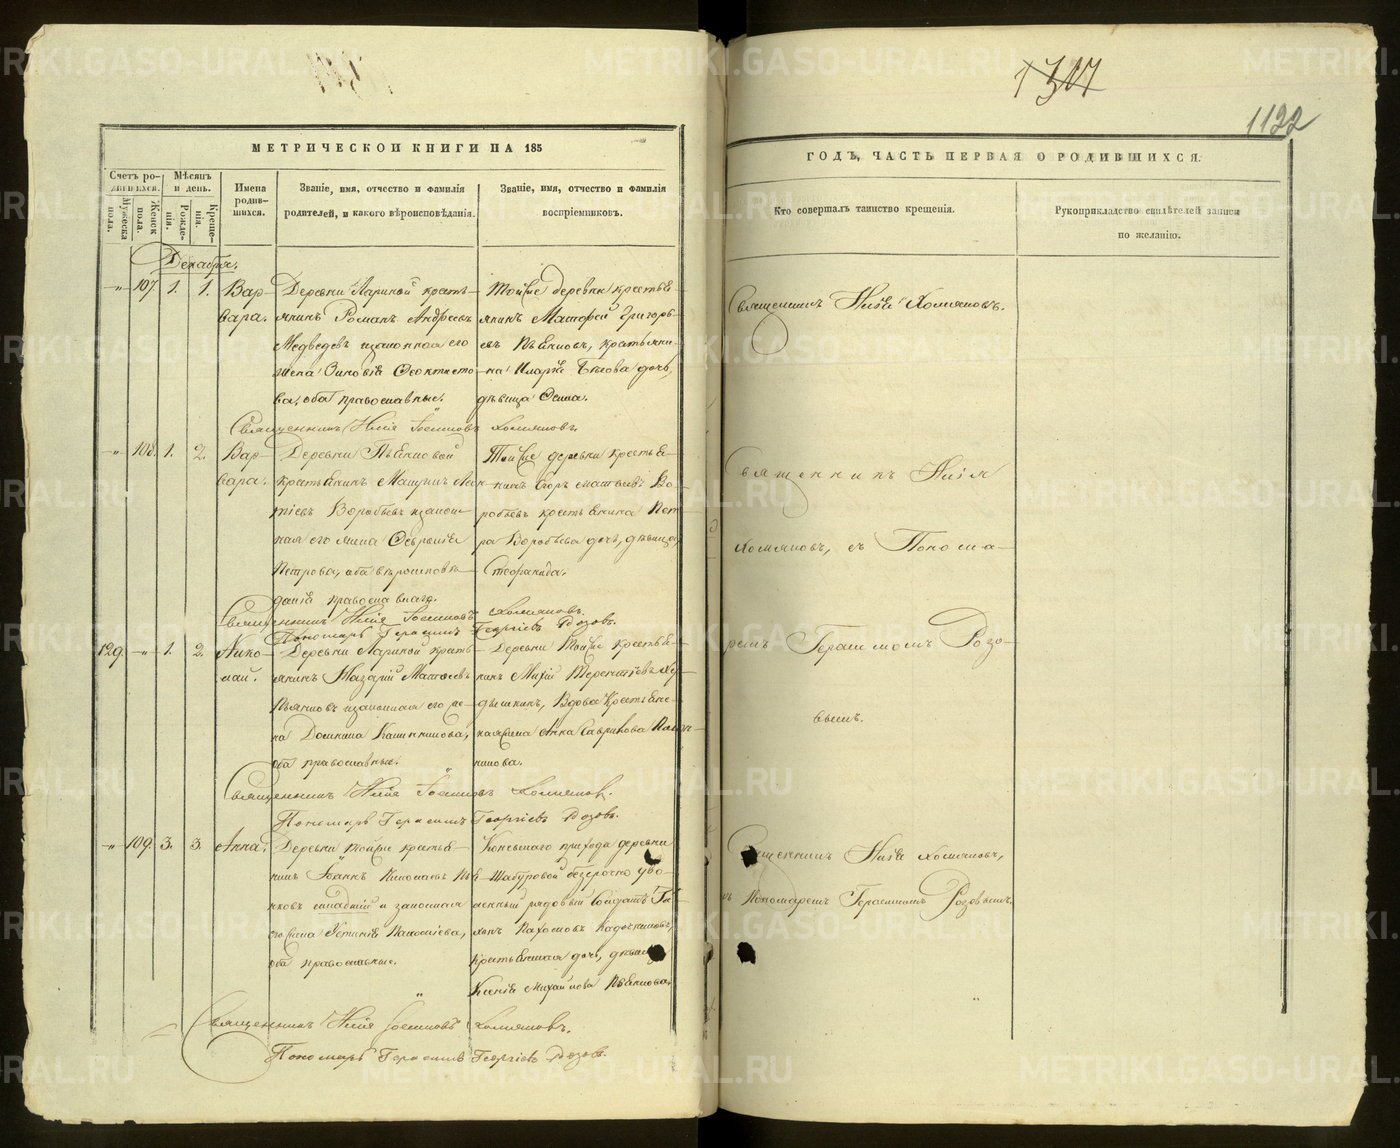 1317
1122
МЕТРИЧЕСКОЙ КНИГИ НА 185
ГОДЪ, ЧАСТЬ ПЕРВАЯ О РОДИВШИХСЯ.
Счетъ ро-
дившихся.
Мѣсяцъ
и день.
Мужеска
пола.
Женск
пола.
Рожде-
нія.
Креще-
нія.
Имена
родив-
шихся.
Званіе, имя, отчество и фамилія
родителей, и какого вѣроисповѣданія.
Званіе, имя, отчество и фамилія
воспріемниковъ.
Кто совершалъ таинство крещенія.
Рукоприкладство свидѣтелей записи
по желанію.
Декабрь.
107 1. 1. Вар-
вара.
Деревни Лариной кресть-
янинъ Романъ Андреевъ
Медвѣдевъ и законная его
жена Зиновія Ѳеоктисто-
ва, оба православные.
Тойже деревни крестья-
янинъ Матѳей Григорь-
евъ, крестьяни-
на дочь,
дѣвица
Священникъ Илія Хомяковъ.
Священникъ Илія Іоанновъ Хомяковъ.
108. 1. 2. Вар-
вара.
Деревни
крестьянинъ
Воробьевъ и закон-
ная его жена Ѳевронія
Петрова, оба вѣроисповѣ-
данія православнаго.
Тойже деревни крестья-
нинъ Егоръ Матвѣевъ Во-
робьевъ крестьянина Пет-
ра Воробьева дочь, дѣвица
Стефанида.
Священникъ Илія
Хомяковъ, съ Понома-
ремъ Герасимомъ Розо-
вымъ.
Священникъ Илія Іоанновъ Хомяковъ.
Пономарь Герасимъ Георгіевъ Розовъ.
129. 1. 2. Нико-
лай.
Деревни Лариной кресть-
янинъ Назарій Матѳеевъ
и законная его же-
на Домника
оба православные.
Деревни тойже крестья-
нинъ Терентіевъ
Вдова
Анна
Священникъ Илія Іоанновъ Хомяковъ.
Пономарь Герасимъ Георгіевъ Розовъ.
109. 3. 3. Анна.
Деревни тойже крестья-
нинъ Іоаннъ Николаевъ
младшій и законная
его жена
оба православные.
прихода деревни
Шабуровой безсрочно уво-
ленный рядовый Солдатъ
Пахомовъ Кадочниковъ,
дочь, дѣвица
Ксенія Михайлова
Священникъ Илія Хомяковъ,
съ Пономаремъ Герасимомъ Розовымъ.
Священникъ Илія Іоанновъ Хомяковъ.
Пономарь Герасимъ Георгіевъ Розовъ.
METRIKI.GASO-URAL.RU